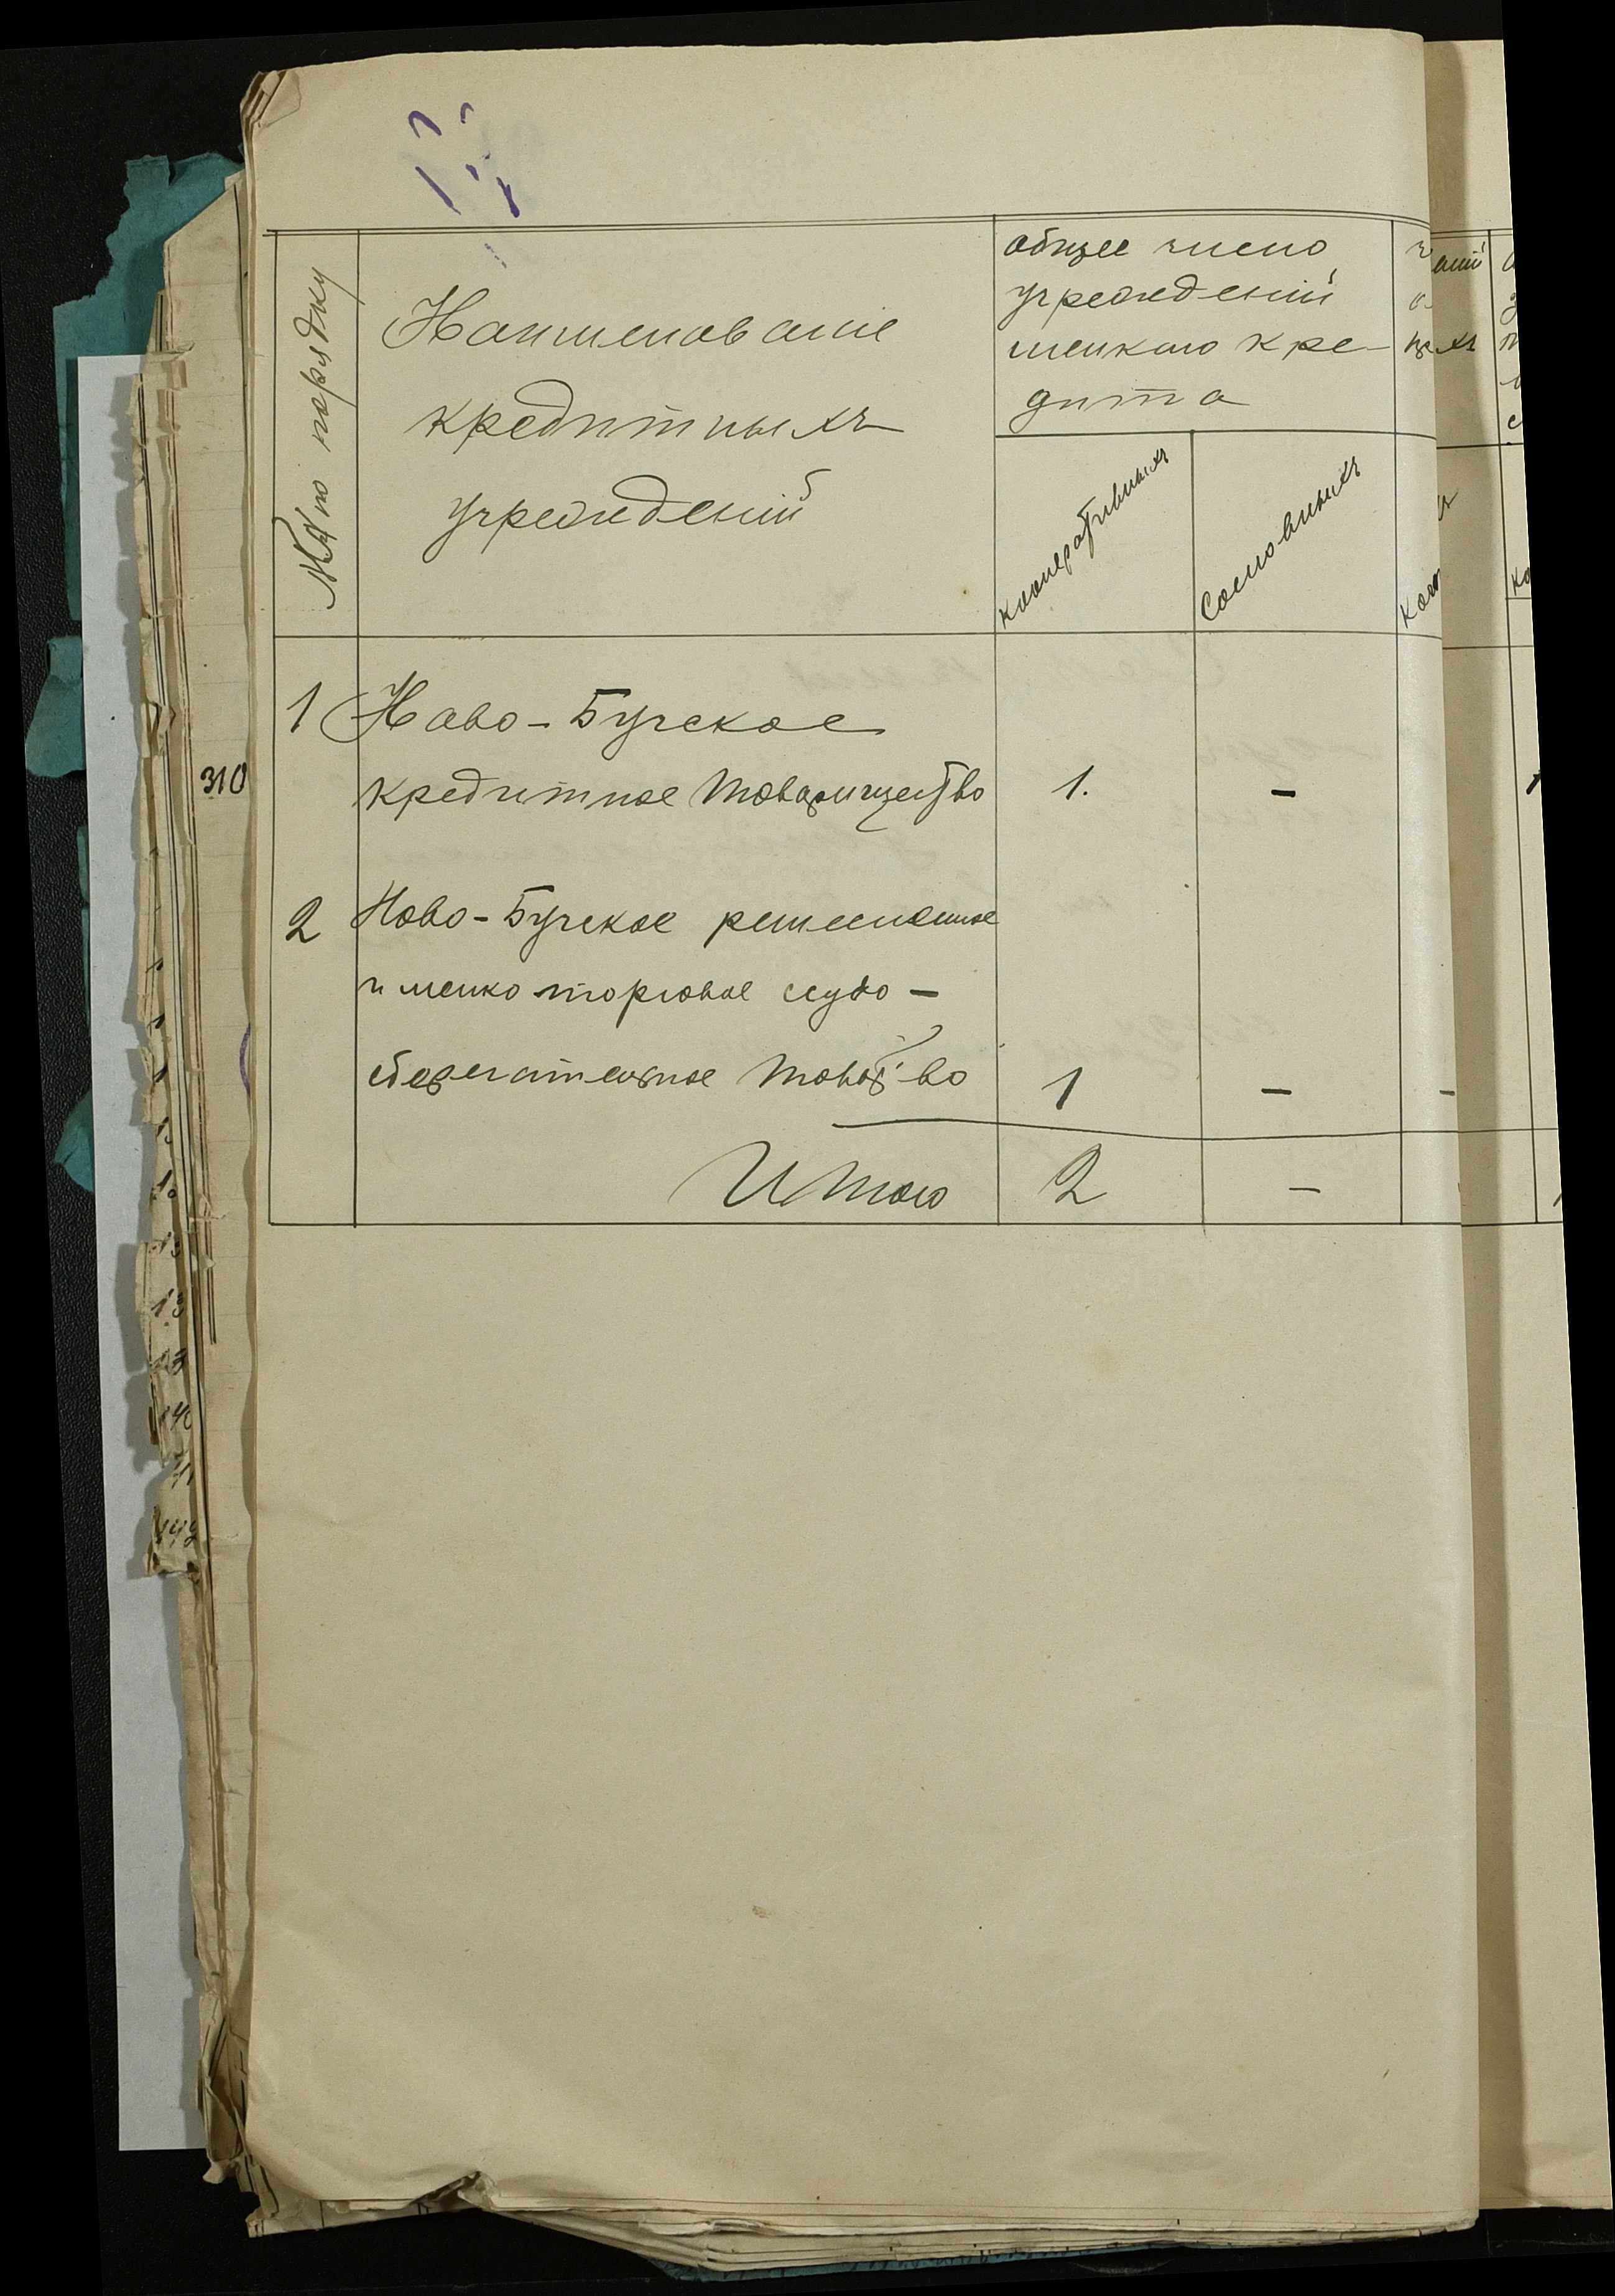 №№ по порядку
Наименованіе
кредитныхъ
учрежденій
общее число
учрежденій
мелкаго кре-
дита
кооперативныхъ
Сословныхъ
1 Ново-Бугское
310
кредитное Товарищество 1. -
2 Ново-Бугское ремесленное
и мелко торговое ссудо-
сберегательное Тов-во 1 - -
Итого 2 -